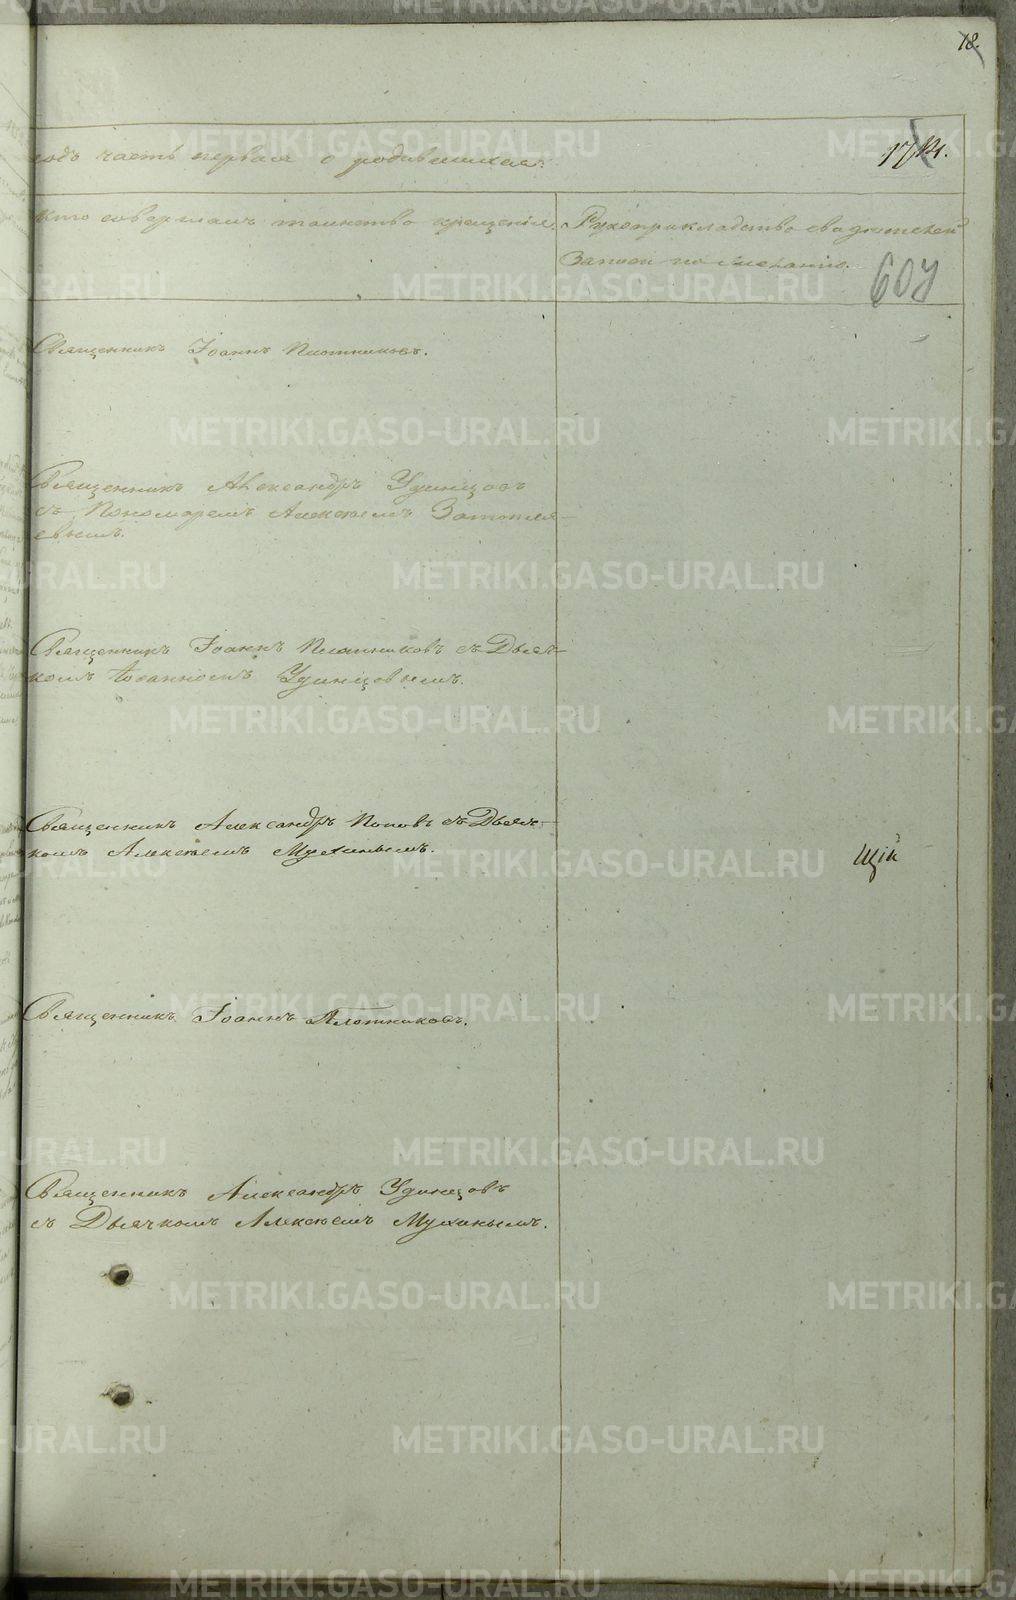 18.
годъ часть первая о родившихся.
Кто совершалъ таинство крещенія.
Рукоприкладство свидѣтелей
записи по желанію.
607
Священникъ Іоаннъ Плотниковъ.
Священникъ Александръ Удинцовъ
съ Пономаремъ Алексѣемъ Затопля-
евымъ.
Священникъ Іоаннъ Плотниковъ съ Дьяч-
комъ Іоанномъ Удинцовымъ.
Священникъ Александръ Поповъ съ Дьяч-
комъ Алексѣемъ Мухинымъ.
щій
Священникъ Іоаннъ Плотниковъ.
Священникъ Александръ Удинцовъ
съ Дьячкомъ Алексѣемъ Мухинымъ.
METRIKI.GASO-URAL.RU